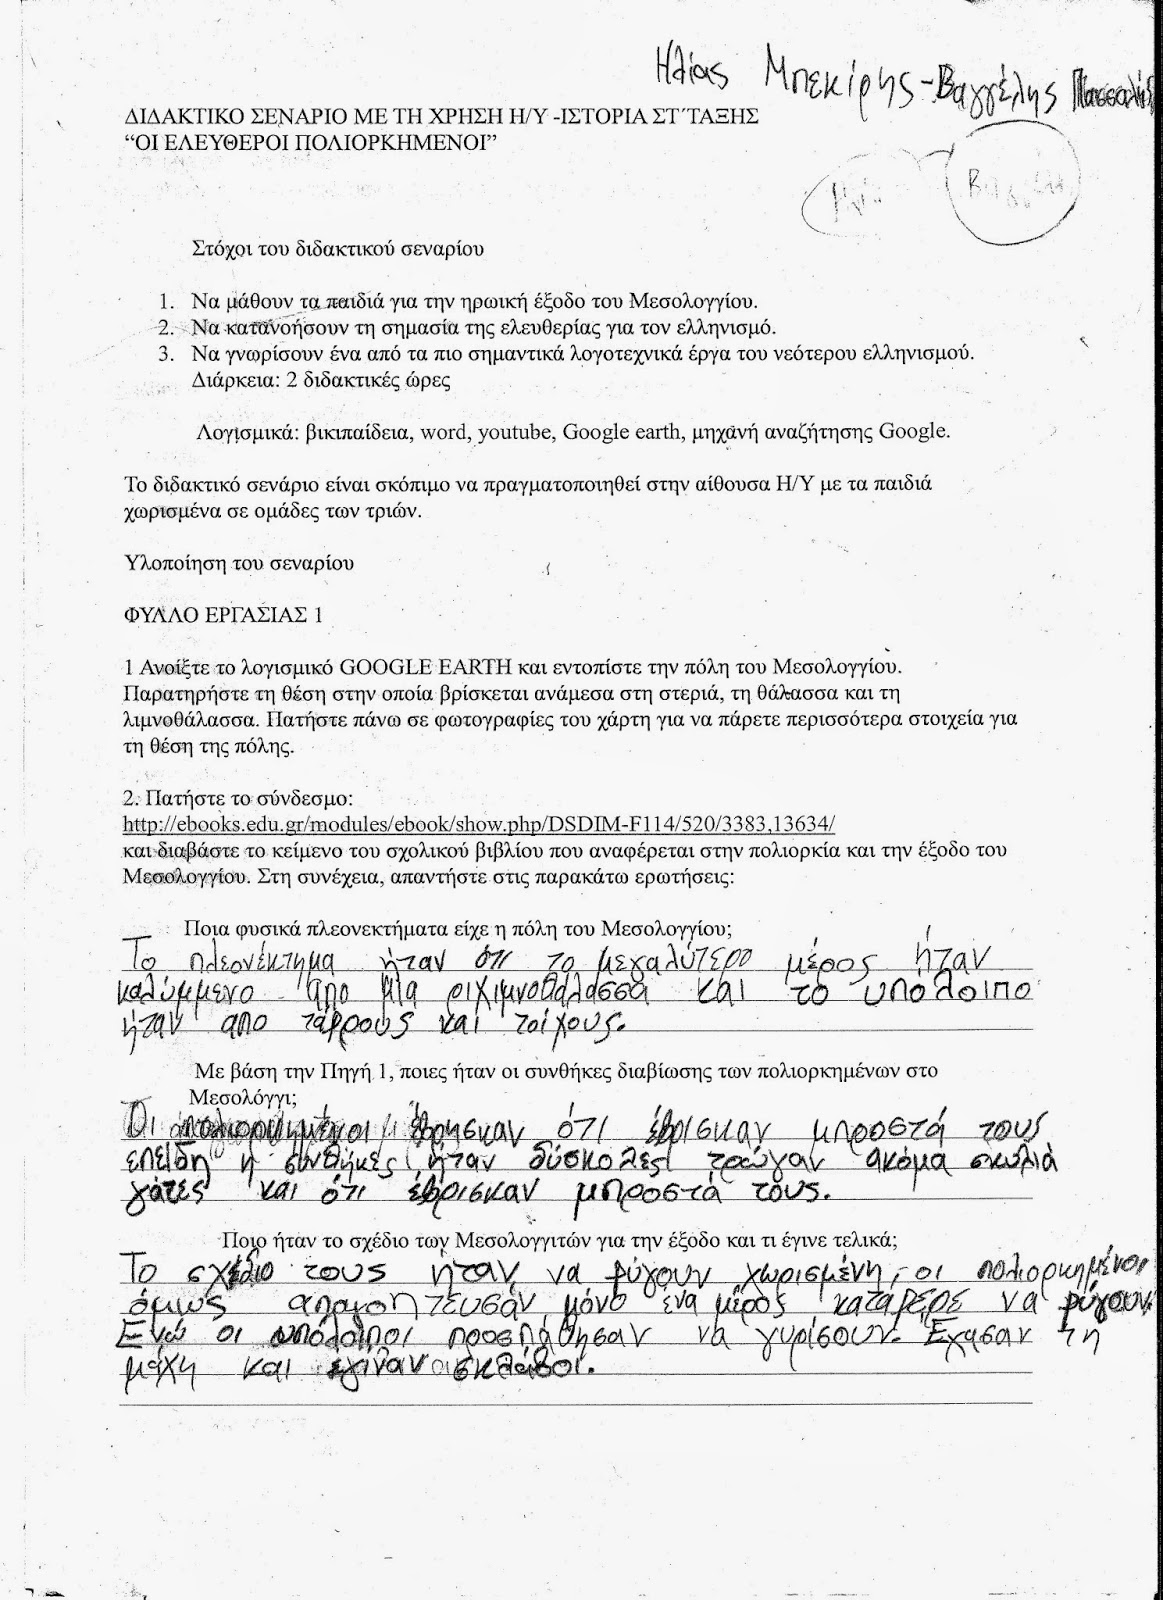 Ηλίας Μπεκίρης-Βαγγέλης
ΔΙΔΑΚΤΙΚΟ ΣΕΝΑΡΙΟ ΜΕ ΤΗ ΧΡΗΣΗ Η/Υ -ΙΣΤΟΡΙΑ ΣΤ΄ΤΑΞΗΣ
“ΟΙ ΕΛΕΥΘΕΡΟΙ ΠΟΛΙΟΡΚΗΜΕΝΟΙ”
Στόχοι του διδακτικού σεναρίου
1. Να μάθουν τα παιδιά για την ηρωική έξοδο του Μεσολογγίου.
2. Να κατανοήσουν τη σημασία της ελευθερίας για τον ελληνισμό.
3. Να γνωρίσουν ένα από τα πιο σημαντικά λογοτεχνικά έργα του νεότερου ελληνισμού.
Διάρκεια: 2 διδακτικές ώρες
Λογισμικά: βικιπαίδεια, word, youtube, Google earth, μηχανή αναζήτησης Google.
Το διδακτικό σενάριο είναι σκόπιμο να πραγματοποιηθεί στην αίθουσα Η/Υ με τα παιδιά
χωρισμένα σε ομάδες των τριών.
Υλοποίηση του σεναρίου
ΦΥΛΛΟ ΕΡΓΑΣΙΑΣ 1
1 Ανοίξτε το λογισμικό GOOGLE EARTH και εντοπίστε την πόλη του Μεσολογγίου.
Παρατηρήστε τη θέση στην οποία βρίσκεται ανάμεσα στη στεριά, τη θάλασσα και τη
λιμνοθάλασσα. Πατήστε πάνω σε φωτογραφίες του χάρτη για να πάρετε περισσότερα στοιχεία για
τη θέση της πόλης.
2. Πατήστε το σύνδεσμο:
http://ebooks.edu.gr/modules/ebook/show.php/DSDIM-F114/520/3383,13634/
και διαβάστε το κείμενο του σχολικού βιβλίου που αναφέρεται στην πολιορκία και την έξοδο του
Μεσολογγίου. Στη συνέχεια, απαντήστε στις παρακάτω ερωτήσεις:
Ποια φυσικά πλεονεκτήματα είχε η πόλη του Μεσολογγίου;
Το πλεονέκτημα ήταν ότι το μεγαλύτερο μέρος ήταν
καλύμμενο απο μια ριχιμνοθάλασσα και το υπόλοιπο
ήταν απο τάφρους και τοίχους.
Με βάση την Πηγή 1, ποιες ήταν οι συνθήκες διαβίωσης των πολιορκημένων στο
Μεσολόγγι;
Οι πολιορκημένοι έβρησκαν ότι έβρισκαν μπροστά τους
επείδη η συνθήκες ήταν δύσκολες τρώγαν ακόμα σκυλιά
γάτες και ότι έβρισκαν μπροστά τους.
Ποιο ήταν το σχέδιο των Μεσολογγιτών για την έξοδο και τι έγινε τελικά;
Το σχέδιο τους ήταν να φύγουν χωρισμένη, οι πολιορκημένοι
όμως μόνο ένα μέρος κατάφερε να φύγουν.
Ενώ οι υπόλοιποι προσπάθησαν να γυρίσουν. Εχασαν τη
μάχη και έγιναν σκλάβοι.